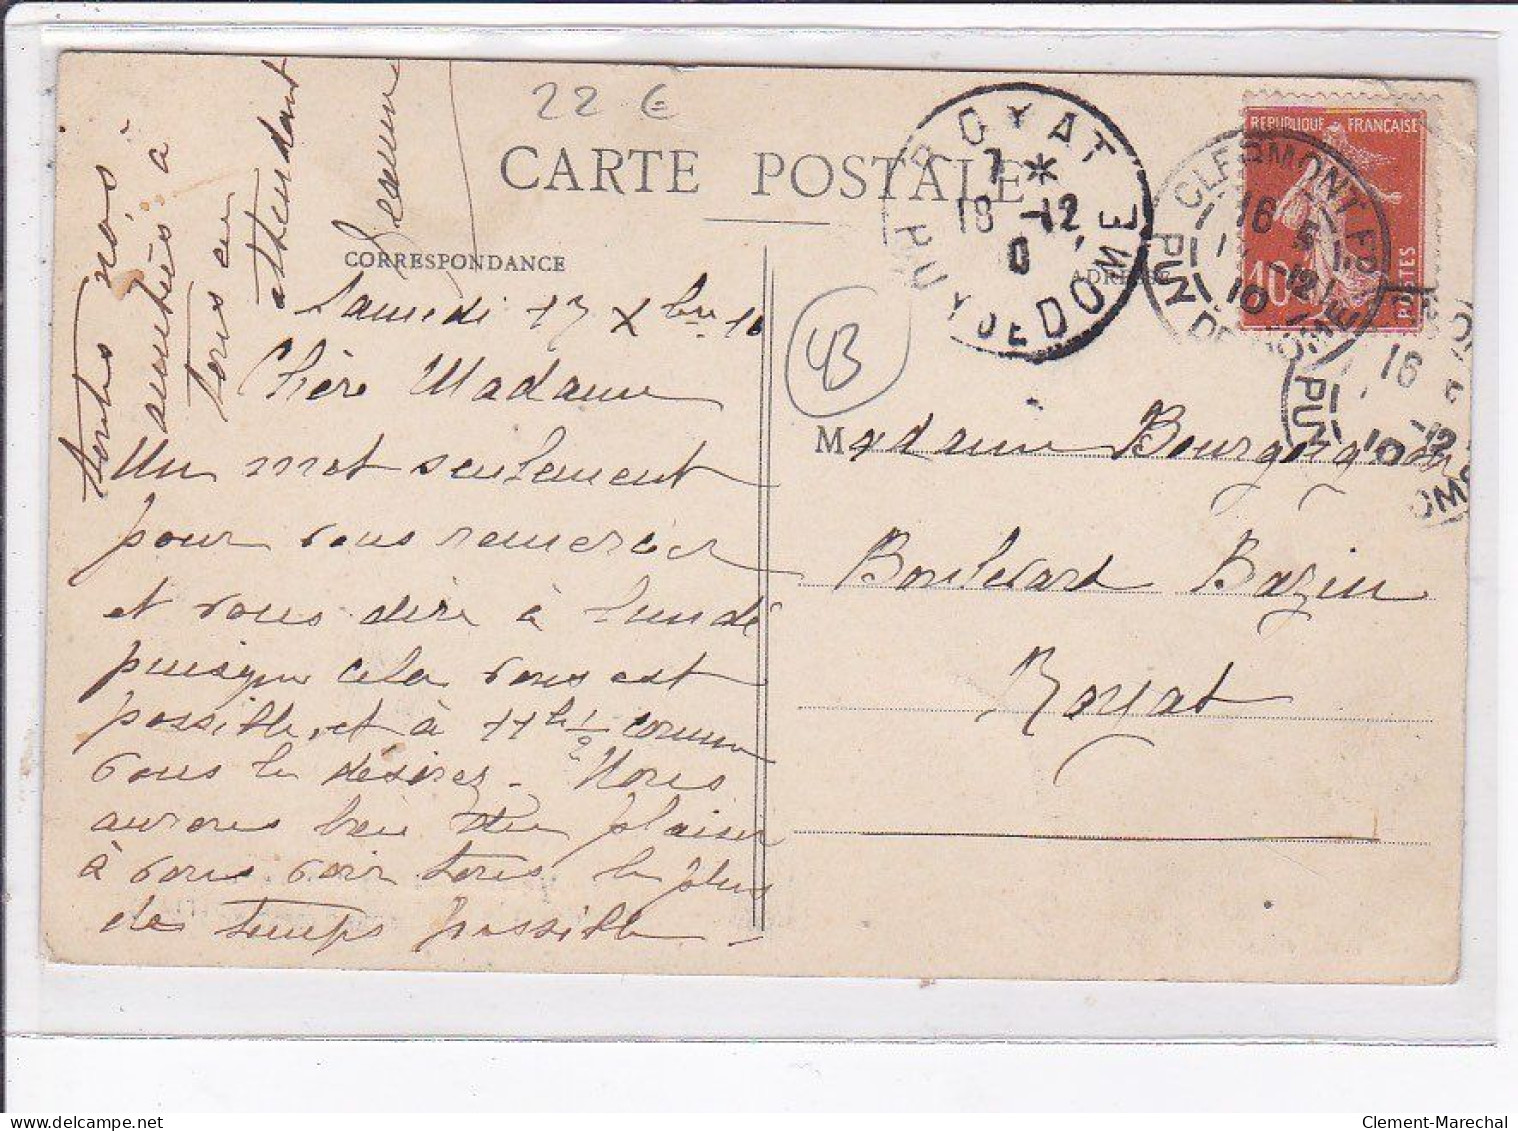 22 €
CARTE POSTALE
CORRESPONDANCE
ROYAT
7 *
18 -12
PUY DE DOME
CLERMONT FD
16
-12
10
PUY DE DOME
REPUBLIQUE FRANÇAISE
10
POSTES
16
-12
10
43
Samedi 17 Xbre 10
Chère Madame
Un mot seulement
pour vous remercier
et vous dire à lundi
puisque cela vous est
possible, et à 11h 1/2 comme
vous le désirez - Nous
aurons bien du plaisir
à vous voir tous le plus
de temps possible -
toutes nos
amitiés à
tous en
attendant
Madame Bourgoignon
Boulevard Bazin
Royat
Clement-Marechal
delcampe.net